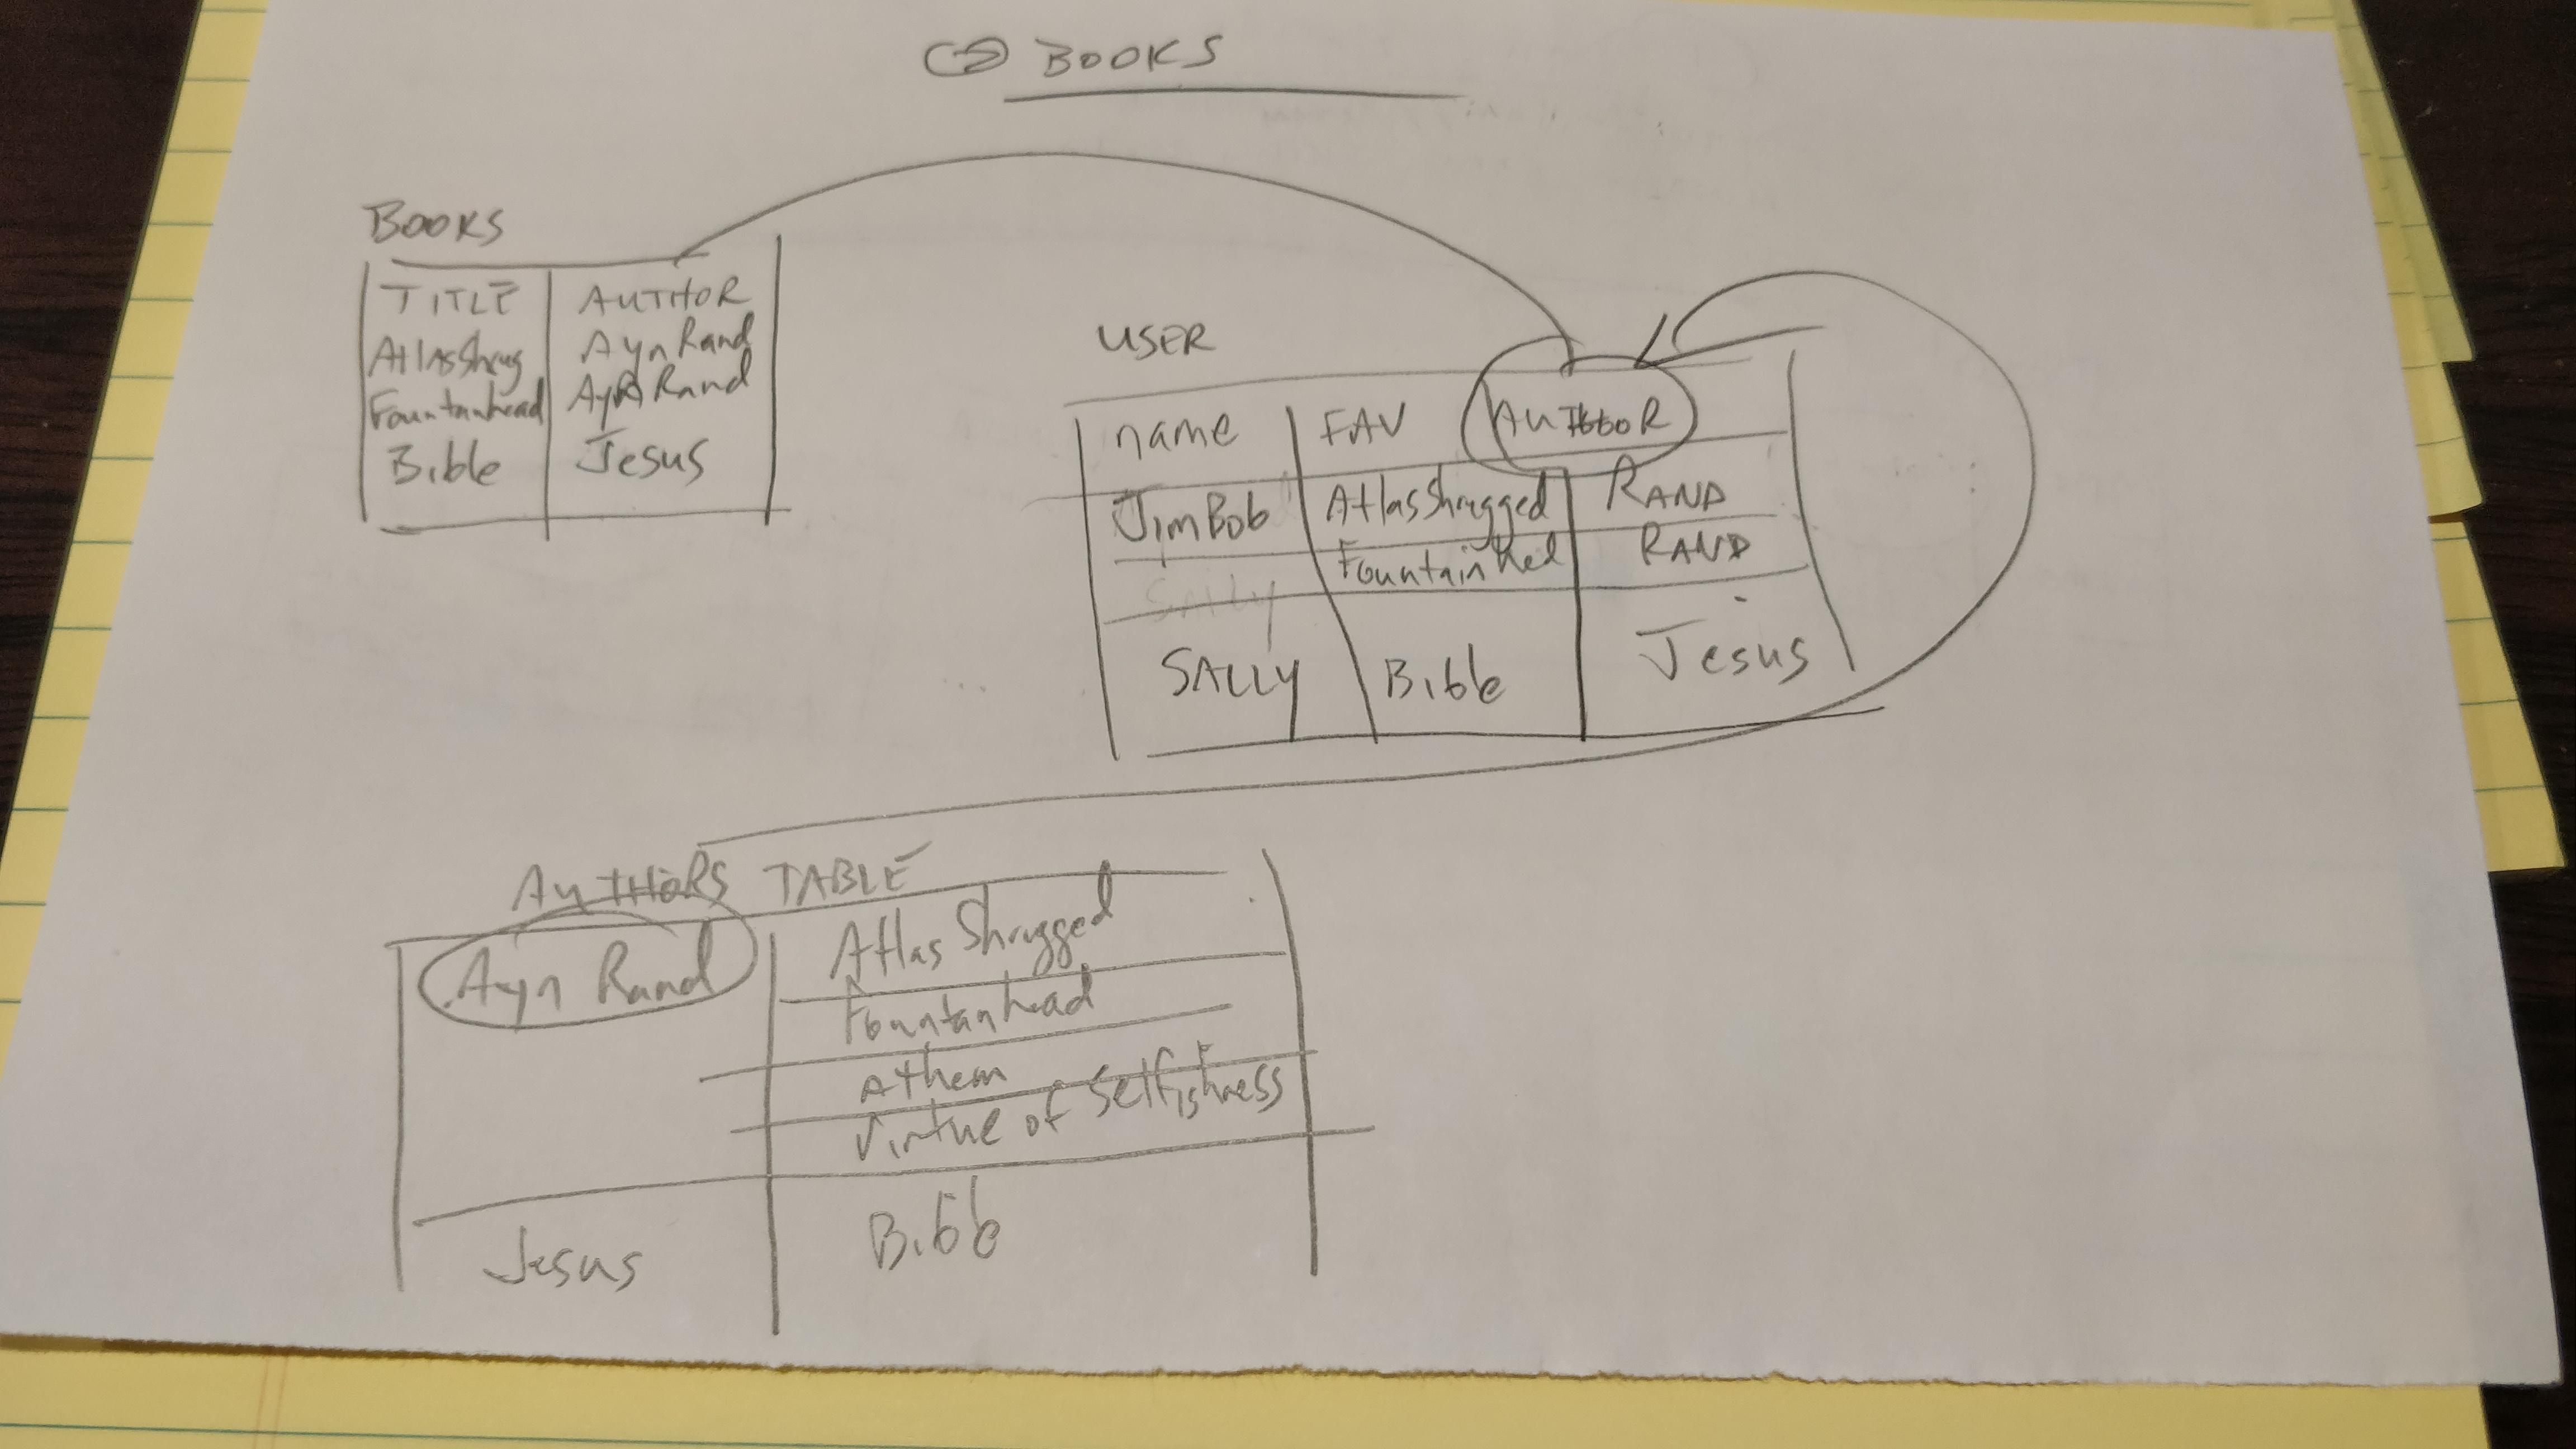 BOOKS
BOOKS
TITLE AUTHOR
AtlasShrug Ayn Rand
Fountanhead Ayn Rand
Bible Jesus
USER
name FAV AUTHOR
JimBob AtlasShrugged RAND
FountainHed RAND
SALLY
SALLY Bible Jesus
AUTHORS TABLE
Ayn Rand Atlas Shrugged
Fountanhead
Athem
Virtue of Selfishness
Jesus Bible